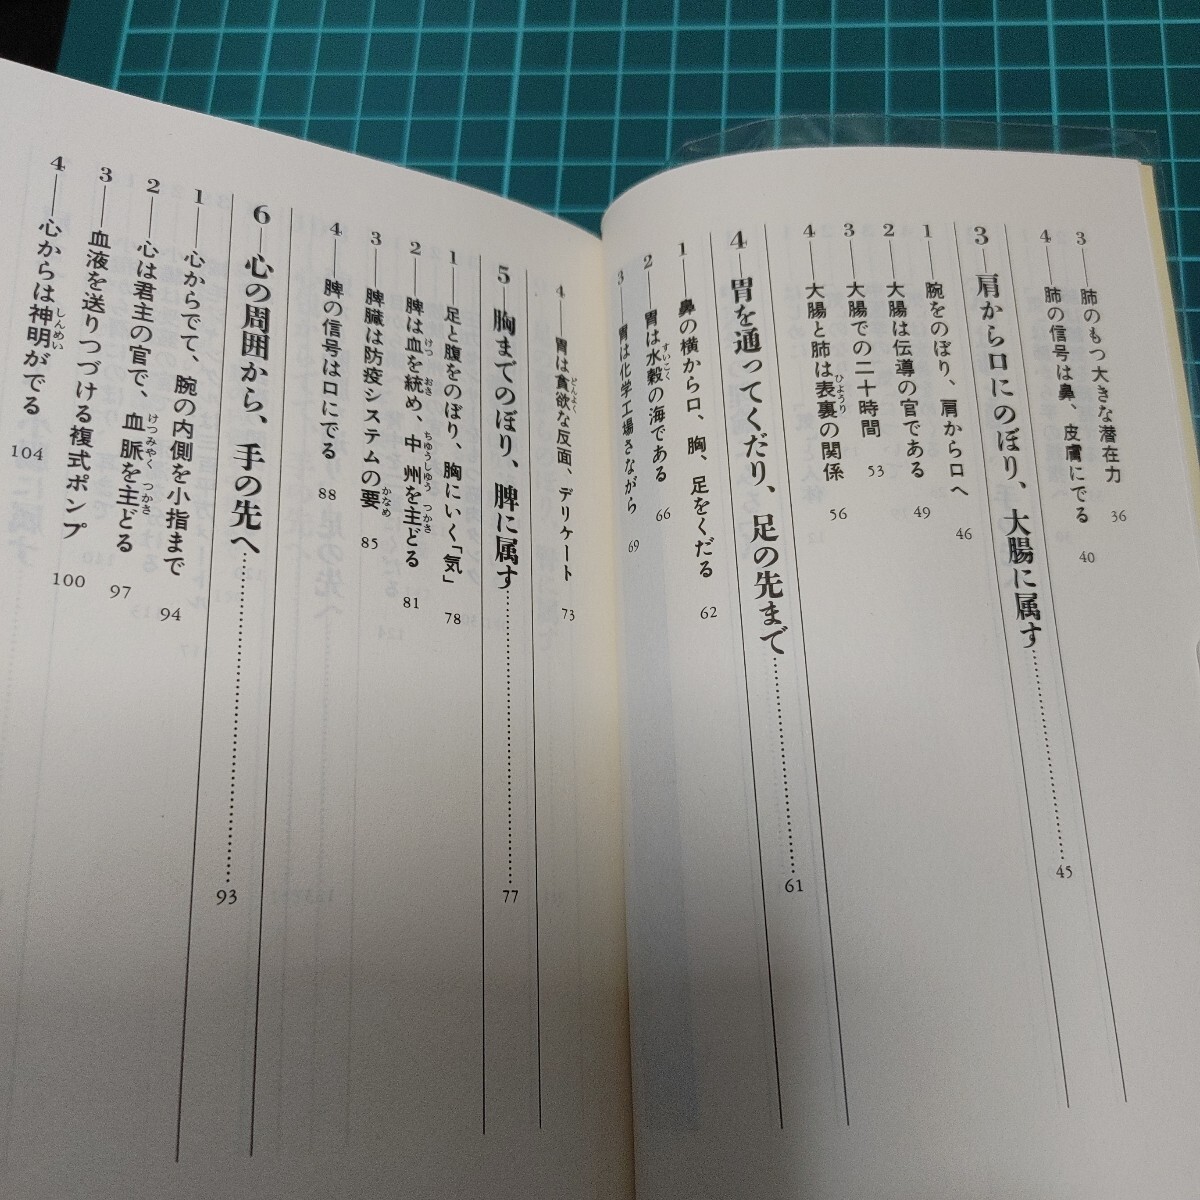 3──肺のもつ大きな潜在力 36
4──肺の信号は鼻、皮膚にでる 40
3──肩から口にのぼり、大腸に属す…………45
1──腕をのぼり、肩から口へ 46
2──大腸は伝導の官である 49
3──大腸での二十時間 53
4──大腸と肺は表裏の関係 56
ひょうり
4──胃を通ってくだり、足の先まで…………61
1──鼻の横から口、胸、足をくだる 62
2──胃は水穀の海である 66
すいこく
3──胃は化学工場さながら 69
4──胃は貪欲な反面、デリケート 73
どんよく
5──胸までのぼり、脾に属す…………77
1──足と腹をのぼり、胸にいく「気」 78
2──脾は血を統め、中州を主どる 81
けつ おさ ちゅうしゅう つかさ
3──脾臓は防疫システムの要 85
かなめ
4──脾の信号は口にでる 88
6──心の周囲から、手の先へ…………93
1──心からでて、腕の内側を小指まで 94
2──心は君主の官で、血脈を主どる 97
けつみゃく つかさ
3──血液を送りつづける複式ポンプ 100
4──心からは神明がでる 104
しんめい